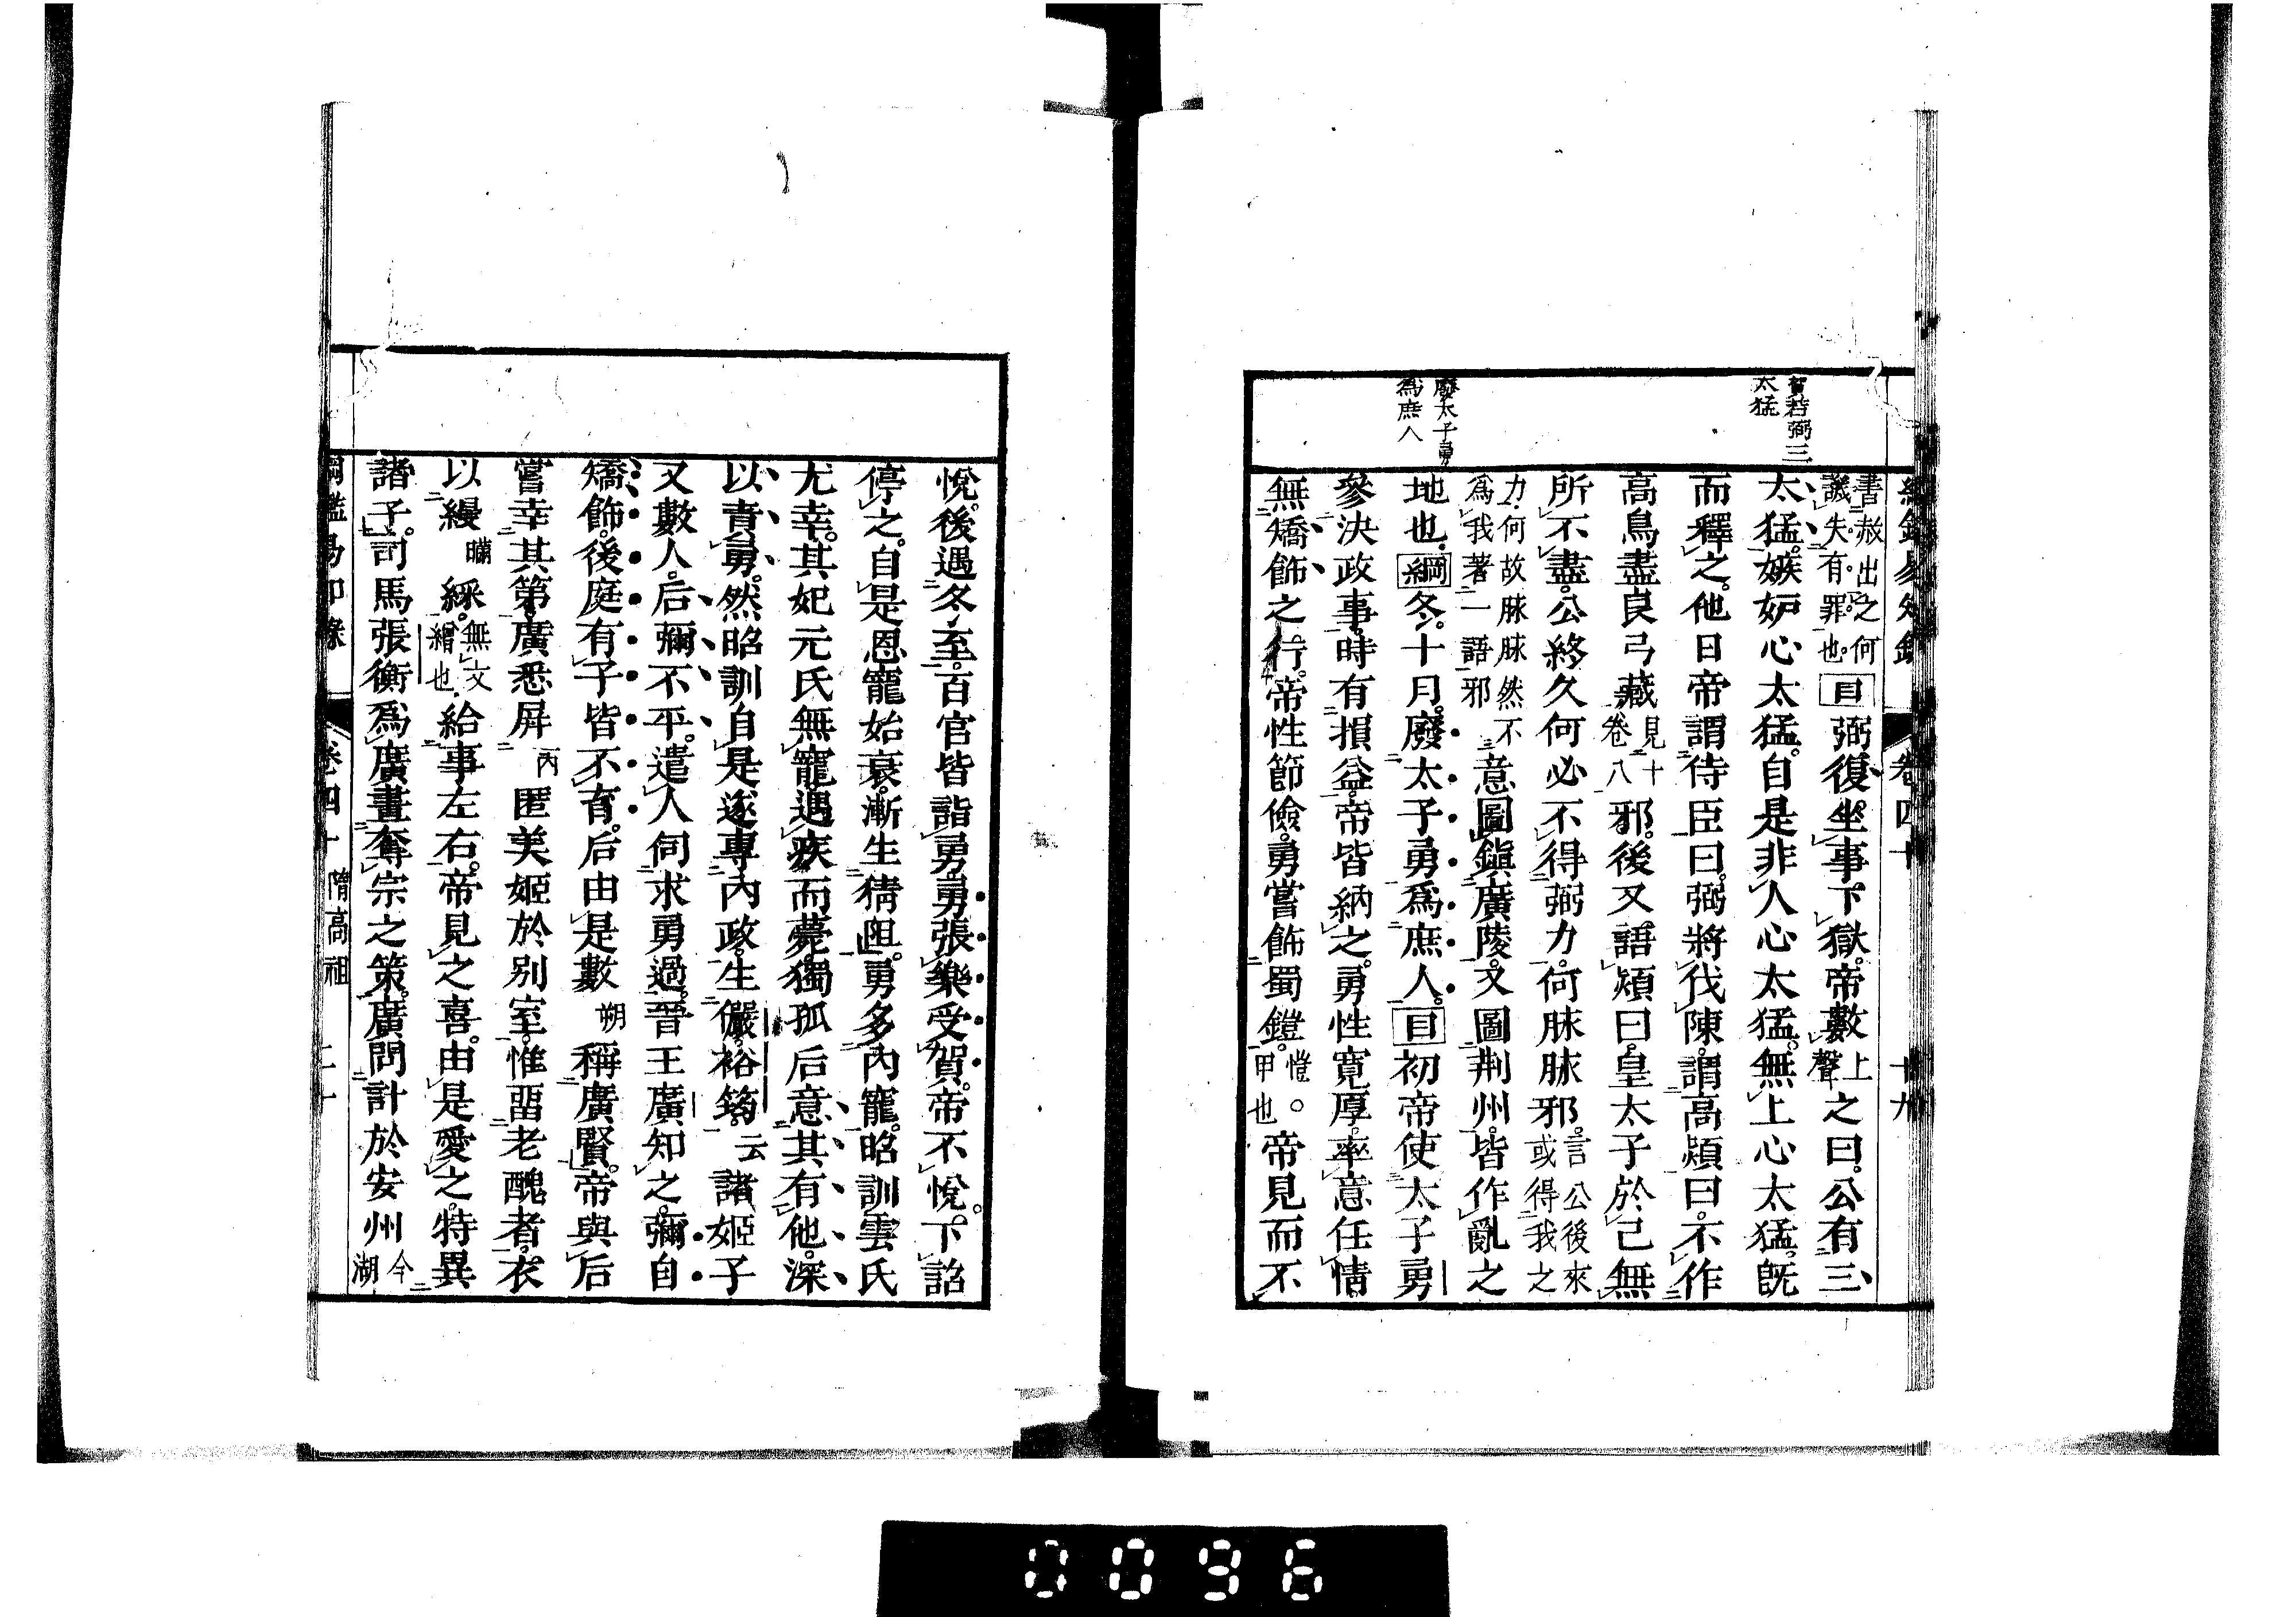 綱鑑易知錄 卷四十 十九
賀若弼三
太猛
廢太子勇
爲庶人
書赦出之何
譏失有罪也。目弼復坐事下獄。帝數上聲之曰。公有三
太猛。嫉妒心太猛。自是非人心太猛。無上心太猛。旣
而釋之。他日帝謂侍臣曰。弼將伐陳。謂高熲曰。不作
高鳥盡良弓藏見十卷八邪。後又語熲曰。皇太子於己無
所不盡。公終久何必不得弼力。何脉脉邪。言公後來或得我之
力。何故脉脉然不爲我著一語邪意圖鎭廣陵。又圖荆州。皆作亂之
地也。綱冬。十月。廢太子勇爲庶人。目初帝使太子勇
參決政事。時有損益。帝皆納之。勇性寬厚。率意任情
無矯飾之行。帝性節儉。勇嘗飾蜀鎧。愷。甲也帝見而不
悅。後遇冬至。百官皆詣勇。勇張樂受賀。帝不悅。下詔
停之。自是恩寵始衰。漸生猜阻。勇多內寵。昭訓雲氏
尤幸。其妃元氏無寵。遇疾而薨。獨孤后意其有他。深
以責勇。然昭訓自是遂專內政。生儼。裕。筠。云諸姬子
又數人。后彌不平。遣人伺求勇過。晉王廣知之。彌自
矯飾。後庭有子皆不育。后由是數朔稱廣賢。帝與后
嘗幸其第。廣悉屏丙匿美姬於別室。惟畱老醜者。衣
以縵瞞綵。無文繒也。給事左右。帝見之喜。由是愛之。特異
諸子。司馬張衡爲廣畫奪宗之策。廣問計於安州今湖
綱鑑易知錄 卷四十 隋高祖 二十
0096